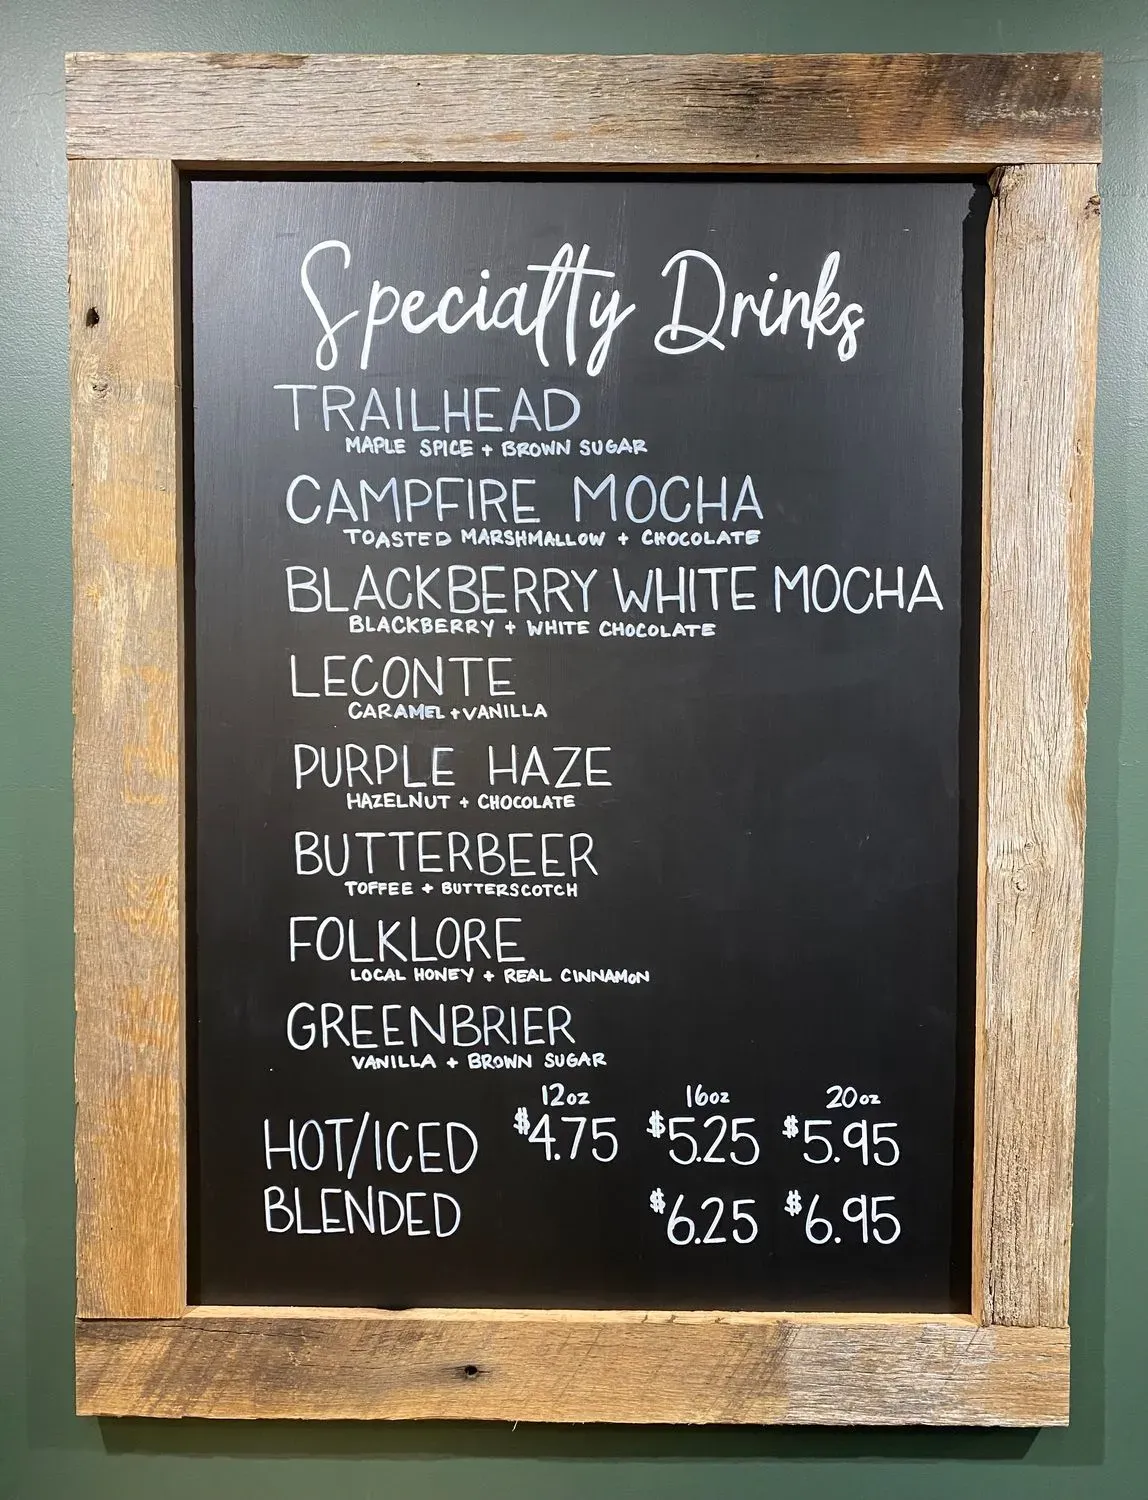 Specialty Drinks
TRAILHEAD
MAPLE SPICE + BROWN SUGAR
CAMPFIRE MOCHA
TOASTED MARSHMALLOW + CHOCOLATE
BLACKBERRY WHITE MOCHA
BLACKBERRY + WHITE CHOCOLATE
LECONTE
CARAMEL + VANILLA
PURPLE HAZE
HAZELNUT + CHOCOLATE
BUTTERBEER
TOFFEE + BUTTERSCOTCH
FOLKLORE
LOCAL HONEY + REAL CINNAMON
GREENBRIER
VANILLA + BROWN SUGAR
12oz 16oz 20oz
HOT/ICED $4.75 $5.25 $5.95
BLENDED $6.25 $6.95